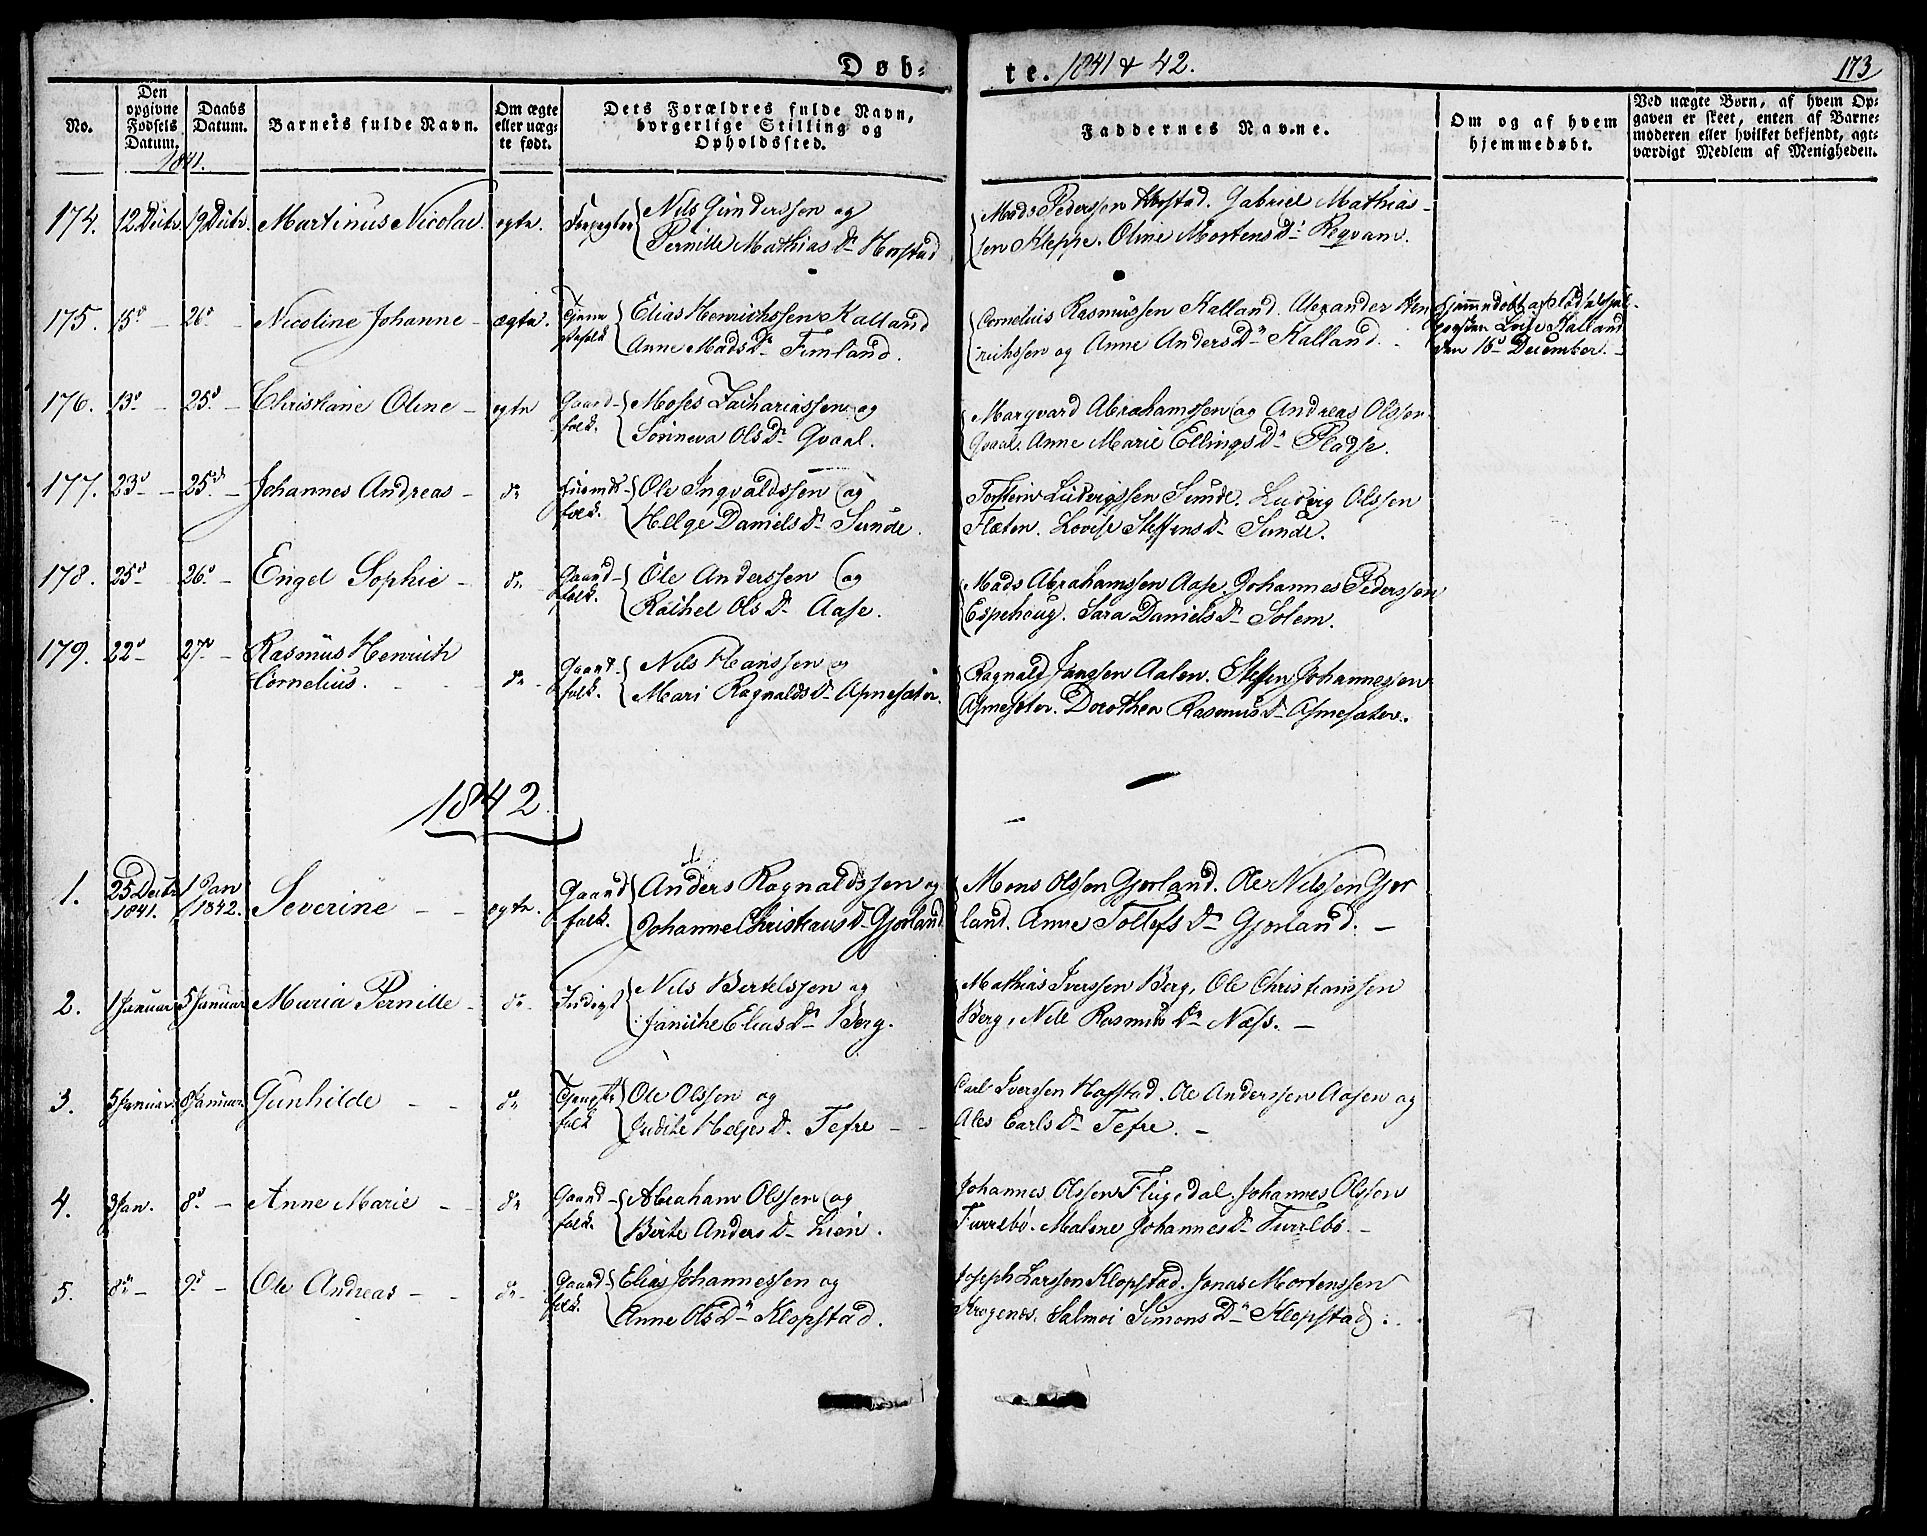 Døb-
te. 1841 & 42.
173
No.
Den opgivne Fødsels Datum.
Daabs Datum.
1841.
Barnets fulde Navn.
Om ægte eller uægte født.
Dets Forældres fulde Navn, borgerlige Stilling og Opholdssted.
Faddernes Navne.
Om og af hvem hjemmedøbt.
Ved uægte Børn, af hvem Opgaven er skeet, enten af Barnemoderen eller hvilket bekjendt, agtværdigt Medlem af Menigheden.
174. 12 Decbr. 19 Decbr. Martinus Nicolai egte.
Nils Gunderssen og
Pernille Mathias Dr Horstad
Mads Pederssen Horstad. Gabriel Mathias-
sen Kleppe. Oline Mortens Dr Reqvam.
175. 15d 26d Nicoline Johanne ægte.
Elias Henrichssen Kalland
Anne Mads Dr Timland.
Cornelius Rasmussen Kalland. Alexander Hen
richssen og Anne Anders Dr Kalland.
hjemmedøbt af
Kalland
den 16d December.
176. 13d 25d Christiane Oline egte
Gaardfolk. Moses Zachariassen og
Sønneva Ols Dr Qvaal.
Marqvard Abrahamssen og Andreas Olssen
Qvaal. Anne Marie Ellings Dr Pladse.
177. 23d 25d Johannes Andreas do
Huusmdsfolk. Ole Ingvaldssen og
Helge Daniels Dr Sunde.
Torstein Ludvigssen Sunde. Ludvig Olssen
Flaten. Lovise Steffens Dr Sunde.
178. 25d 26d Engel Sophie do
Gaardfolk. Ole Anderssen og
Rachel Ols Dr Aase.
Mads Abrahamssen Aase. Johannes Pederssen
Espehoug. Sara Daniels Dr Solem.
179. 22d 27d Rasmus Henrich
Cornelius. do
Gaardfolk. Nils Hanssen og
Mari Ragnalds Dr Asmesæter.
Ragnald Janssen Aalen. Steffen Johannessen
Asmesæter. Dorothea Rasmus Dr Asmesæter.
1842
1. 25 Decbr 1841. 1 Jan 1842. Severine egte.
Gaardfolk. Anders Ragnaldssen og
Johanne Christians Dr Gjørland
Mons Olssen Gjørland. Ole Nilssen Gjør
land. Anne Tollefs Dr Gjørland.
2. 1 Januar 5 Januar Maria Pernille do
Inderst Nils Bertelssen og
Janiche Elias Dr Berg.
Mathias Iverssen Berg, Ole Christianssen
Berg, Nille Rasmus Dr Næss.
3. 5 Januar 8 Januar. Gunhilde do
folk Ole Olssen og
Judite Helges Dr. Tefre
Carl Iverssen Hafstad. Ole Anderssen Aasen og
Ales Carls Dr Tefre.
4. 3 Jan. 8d Anne Marie do
Gaardfolk. Abraham Olssen og
Birte Anders Dr Lien.
Johannes Olssen Flugedal. Johannes Olssen
Furrebø. Malene Johannes Dr Furrebø.
5. 8de 9d Ole Andreas do
Gaardfolk. Elias Johannessen og
Anne Ols Dr Klopstad.
Joseph Larssen Klopstad. Jonas Mortenssen
Krogenæs. Salmoi Simons Dr Klopstad.